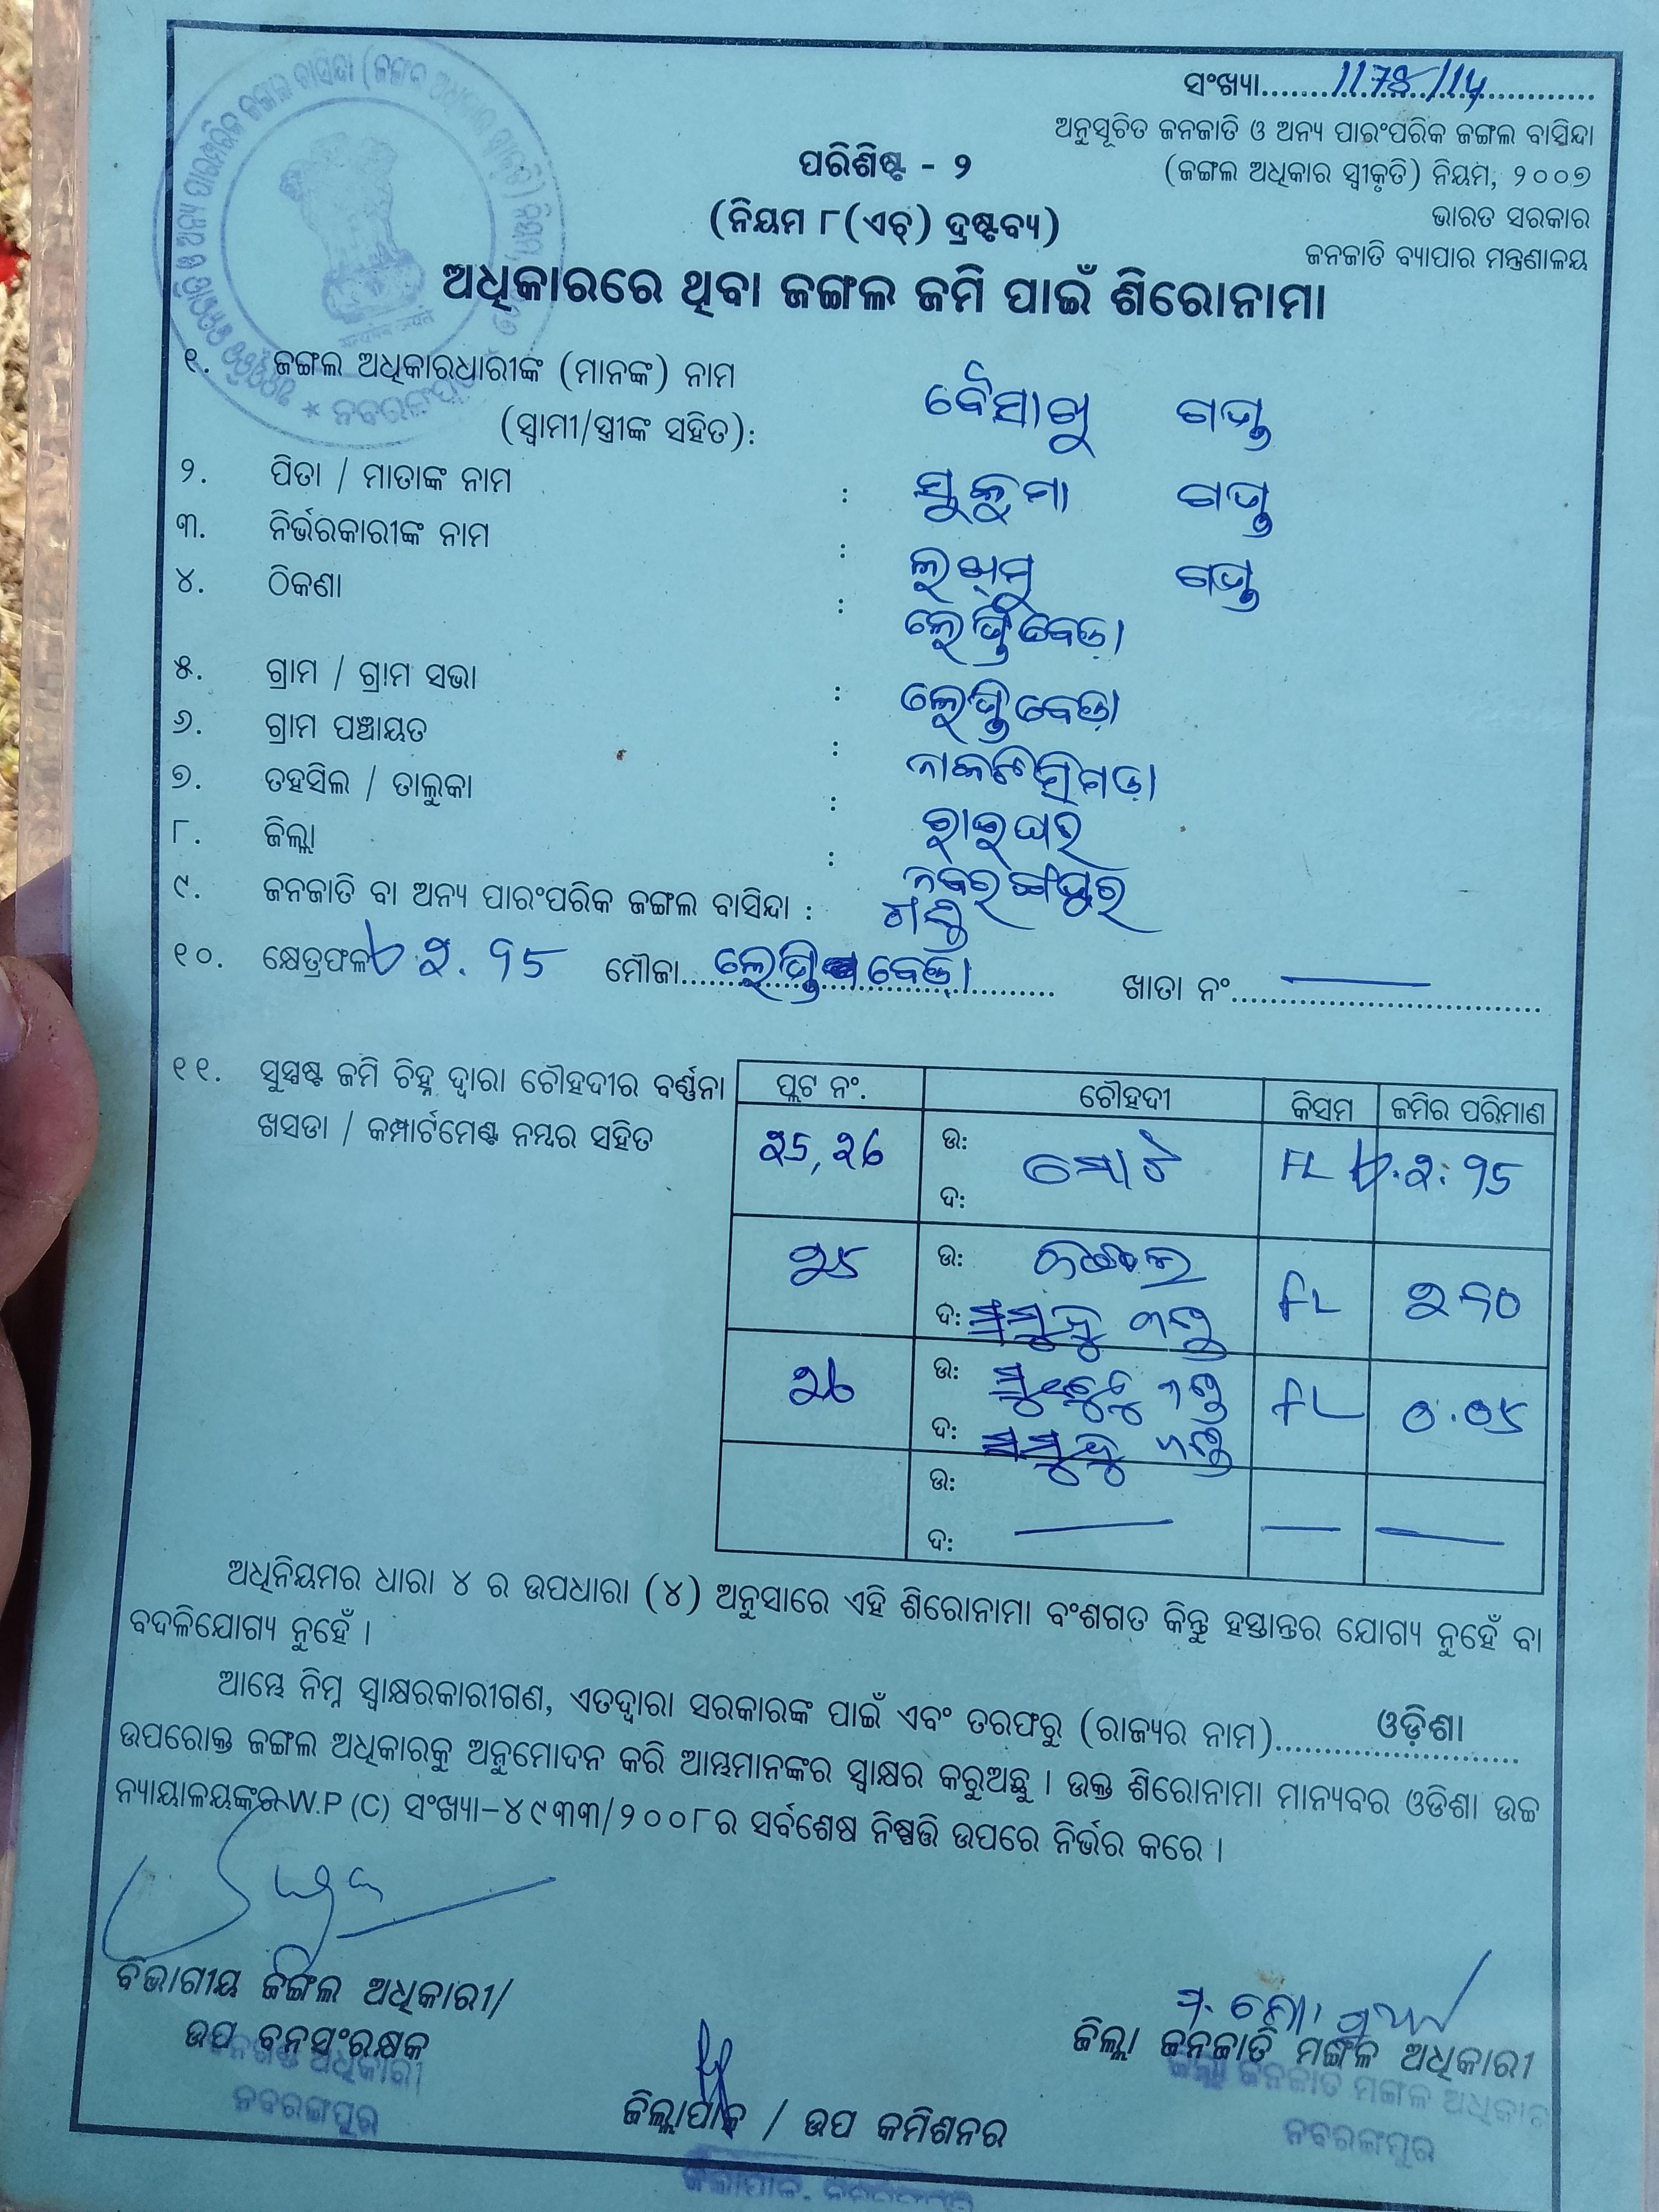 ସଂଖ୍ୟା..........1178/14..........
ଅନୁସୂଚିତ ଜନଜାତି ଓ ଅନ୍ୟ ପାରଂପରିକ ଜଙ୍ଗଲ ବାସିନ୍ଦା
(ଜଙ୍ଗଲ ଅଧିକାର ସ୍ୱୀକୃତି) ନିୟମ, ୨୦୦୭
ଭାରତ ସରକାର
ଜନଜାତି ବ୍ୟାପାର ମନ୍ତ୍ରଣାଳୟ
ପରିଶିଷ୍ଟ - ୨
(ନିୟମ ୮(ଏଚ୍) ଦ୍ରଷ୍ଟବ୍ୟ)
ଅଧିକାରରେ ଥିବା ଜଙ୍ଗଲ ଜମି ପାଇଁ ଶିରୋନାମା
୧. ଜଙ୍ଗଲ ଅଧିକାରଧାରୀଙ୍କ (ମାନଙ୍କ) ନାମ
(ସ୍ୱାମୀ/ସ୍ତ୍ରୀଙ୍କ ସହିତ): ବୈସାଖୁ ଗଣ୍ଡ
୨. ପିତା / ମାତାଙ୍କ ନାମ : ସୁକୁମା ଗଣ୍ଡ
୩. ନିର୍ଭରକାରୀଙ୍କ ନାମ : ଲଖ୍ମୁ ଗଣ୍ଡ
୪. ଠିକଣା :
୫. ଗ୍ରାମ / ଗ୍ରାମ ସଭା :
୬. ଗ୍ରାମ ପଞ୍ଚାୟତ :
୭. ତହସିଲ / ତାଲୁକା : ରାଇଘର
୮. ଜିଲ୍ଲା : ନବରଙ୍ଗପୁର
୯. ଜନଜାତି ବା ଅନ୍ୟ ପାରଂପରିକ ଜଙ୍ଗଲ ବାସିନ୍ଦା : ଗଣ୍ଡ
୧୦. କ୍ଷେତ୍ରଫଳ ମୌଜା.......... ଖାତା ନଂ..........
୧୧. ସୁସ୍ପଷ୍ଟ ଜମି ଚିହ୍ନ ଦ୍ୱାରା ଚୌହଦୀର ବର୍ଣ୍ଣନା
ଖସଡା / କମ୍ପାର୍ଟମେଣ୍ଟ ନମ୍ବର ସହିତ
ପ୍ଲଟ ନଂ. ଚୌହଦୀ କିସମ ଜମିର ପରିମାଣ
25, 26 ଉ: ମୋଟ FL 2.75
ଦ:
25 ଉ: ଜଙ୍ଗଲ FL 2.70
ଦ:
26 ଉ: FL 0.05
ଦ:
ଉ:
ଦ:
ଅଧିନିୟମର ଧାରା ୪ ର ଉପଧାରା (୪) ଅନୁସାରେ ଏହି ଶିରୋନାମା ବଂଶଗତ କିନ୍ତୁ ହସ୍ତାନ୍ତର ଯୋଗ୍ୟ ନୁହେଁ ବା
ବଦଳିଯୋଗ୍ୟ ନୁହେଁ ।
ଆମ୍ଭେ ନିମ୍ନ ସ୍ୱାକ୍ଷରକାରୀଗଣ, ଏତଦ୍ୱାରା ସରକାରଙ୍କ ପାଇଁ ଏବଂ ତରଫରୁ (ରାଜ୍ୟର ନାମ)..........ଓଡ଼ିଶା..........
ଉପରୋକ୍ତ ଜଙ୍ଗଲ ଅଧିକାରକୁ ଅନୁମୋଦନ କରି ଆମ୍ଭମାନଙ୍କର ସ୍ୱାକ୍ଷର କରୁଅଛୁ । ଉକ୍ତ ଶିରୋନାମା ମାନ୍ୟବର ଓଡିଶା ଉଚ୍ଚ
ନ୍ୟାୟାଳୟଙ୍କର W.P (C) ସଂଖ୍ୟା-୪୯୩୩/୨୦୦୮ର ସର୍ବଶେଷ ନିଷ୍ପତ୍ତି ଉପରେ ନିର୍ଭର କରେ ।
ବିଭାଗୀୟ ଜଙ୍ଗଲ ଅଧିକାରୀ/
ଉପ ବନସଂରକ୍ଷକ
ବନଖଣ୍ଡ ଅଧିକାରୀ
ନବରଙ୍ଗପୁର
ଜିଲ୍ଲାପାଳ / ଉପ କମିଶନର
ଜିଲ୍ଲାପାଳ, ନବରଙ୍ଗପୁର
ଜିଲ୍ଲା ଜନଜାତି ମଙ୍ଗଳ ଅଧିକାରୀ
ଜିଲ୍ଲା ଜନଜାତି ମଙ୍ଗଳ ଅଧିକାରୀ
ନବରଙ୍ଗପୁର